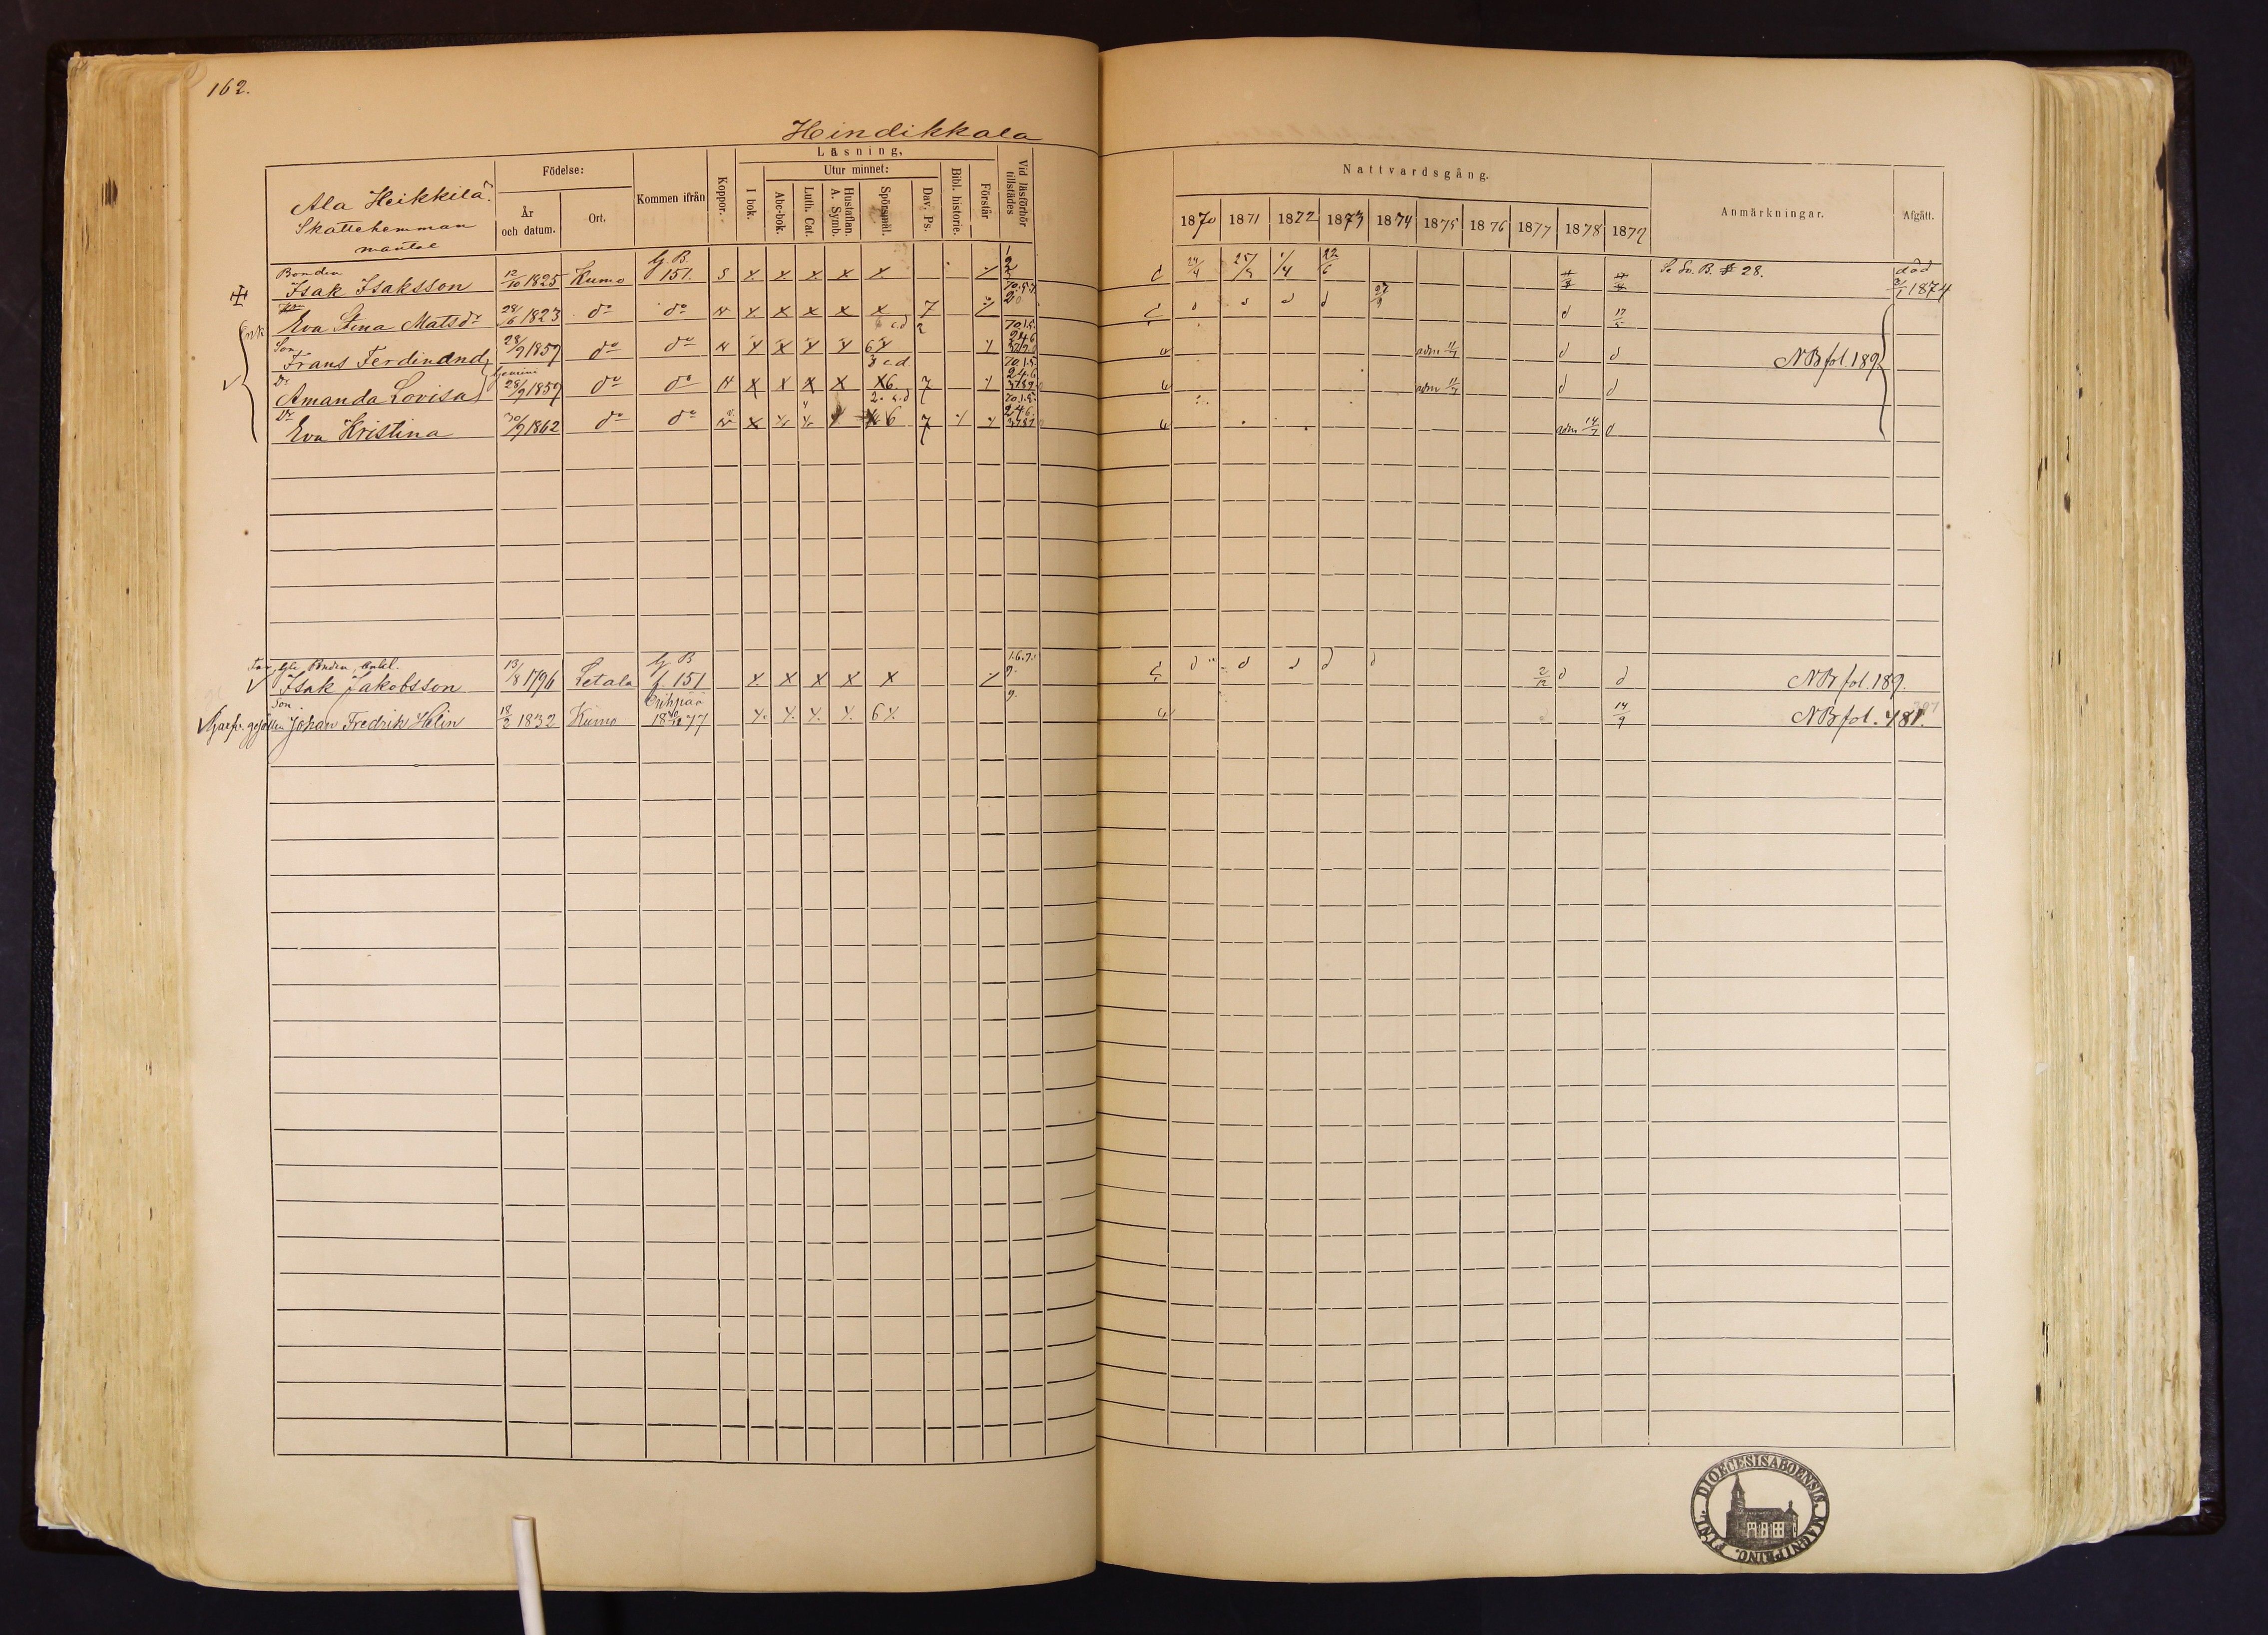 162.
Hindikkala
Ala Heikkilä
Skattehemman
mantal
Födelse:
År och datum.
Ort.
Kommen ifrån
Koppor.
Läsning.
I bok.
Utur minnet:
Abc-bok.
Luth. Cat.
Hustaflan. A. Symb.
Spörsmål.
Dav. Ps.
Bibl. historie.
Förstår
Vid läsförhör tillstädes
Nattvardsgång.
1870 1871 1872 1873 1874 1875 1876 1877 1878 1879
Anmärkningar.
Afgått.
Bonden
Isak Isaksson 12/10 1825 Kumo G. B. 151. S x x x x x 24/4 25/3 1/4 22/6 Se Sv. B. § 28. död 2/1 1874
Enk
Eva Stina Matsdr 28/6 1823 do do x x x x x 7 d d d d 27/9 d 17/5
Son
Frans Ferdinand 28/9 1859 do do 6 adm 11/7 d d NB fol. 189
Dr Gemini
Amanda Lovisa 28/9 1859 do do x x x x x6 7 adm 11/7 d d
Dr
Eva Kristina 30/9 1862 do do x 6 7 adm 14/7 d
Far, Gle Bonden, Enkl.
Isak Jakobsson 13/8 1796 Letala G B f. 151 x x x x x 1.6.7. 9. d d d d d 2/12 d d NB fol. 189.
Son
Johan Fredrik Helin 18/2 1832 Kumo 1877 6 9. 14/9 NB fol. 481.
DIOECESIS ABOENSIS. MAGNI PRINC. FINL.